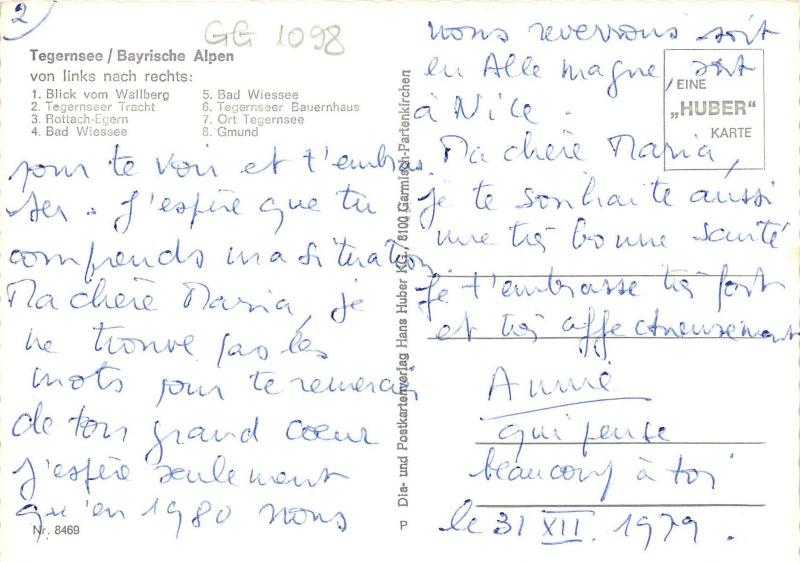 2
GG 1098
Tegernsee / Bayrische Alpen
von links nach rechts:
1. Blick vom Wallberg
2. Tegernseer Tracht
3. Rottach-Egern
4. Bad Wiessee
5. Bad Wiessee
6. Tegernseer Bauernhaus
7. Ort Tegernsee
8. Gmund
pour te voir et t'embras
ser. J'espère que tu
comprends ma situation
Ma chère Maria, je
ne trouve pas les
mots pour te remercier
de ton grand coeur
J'espère seulement
qu'en 1980 nous
Nr. 8469
Dia- und Postkartenverlag Hans Huber KG., 8100 Garmisch-Partenkirchen
P
EINE
„HUBER"
KARTE
nous reverrons soit
en Allemagne, soit
à Nice.
Ma chère Maria,
je te souhaite aussi
une très bonne santé
Je t'embrasse très fort
et très affectueusement
Annie
qui pense
beaucoup à toi
le 31 XII. 1979.